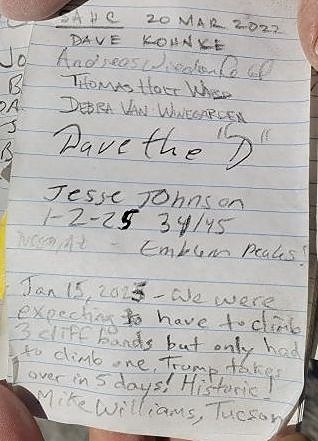 SAHC 20 MAR 2022
DAVE KOHNKE
THOMAS HOLT WARD
DEBRA VAN WINEGARDEN
Dave the "D"
Jesse Johnson
1-2-25 34/45
Emblem Peaks!
Jan 15, 2025 - We were
expecting to have to climb
3 cliff bands but only had
to climb one. Trump takes
over in 5 days! Historic!
Mike Williams, Tucson